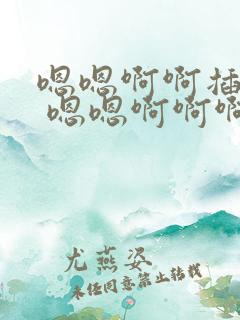 嗯嗯啊啊插
嗯嗯啊啊啊
尤燕姿
未经同意禁止转载